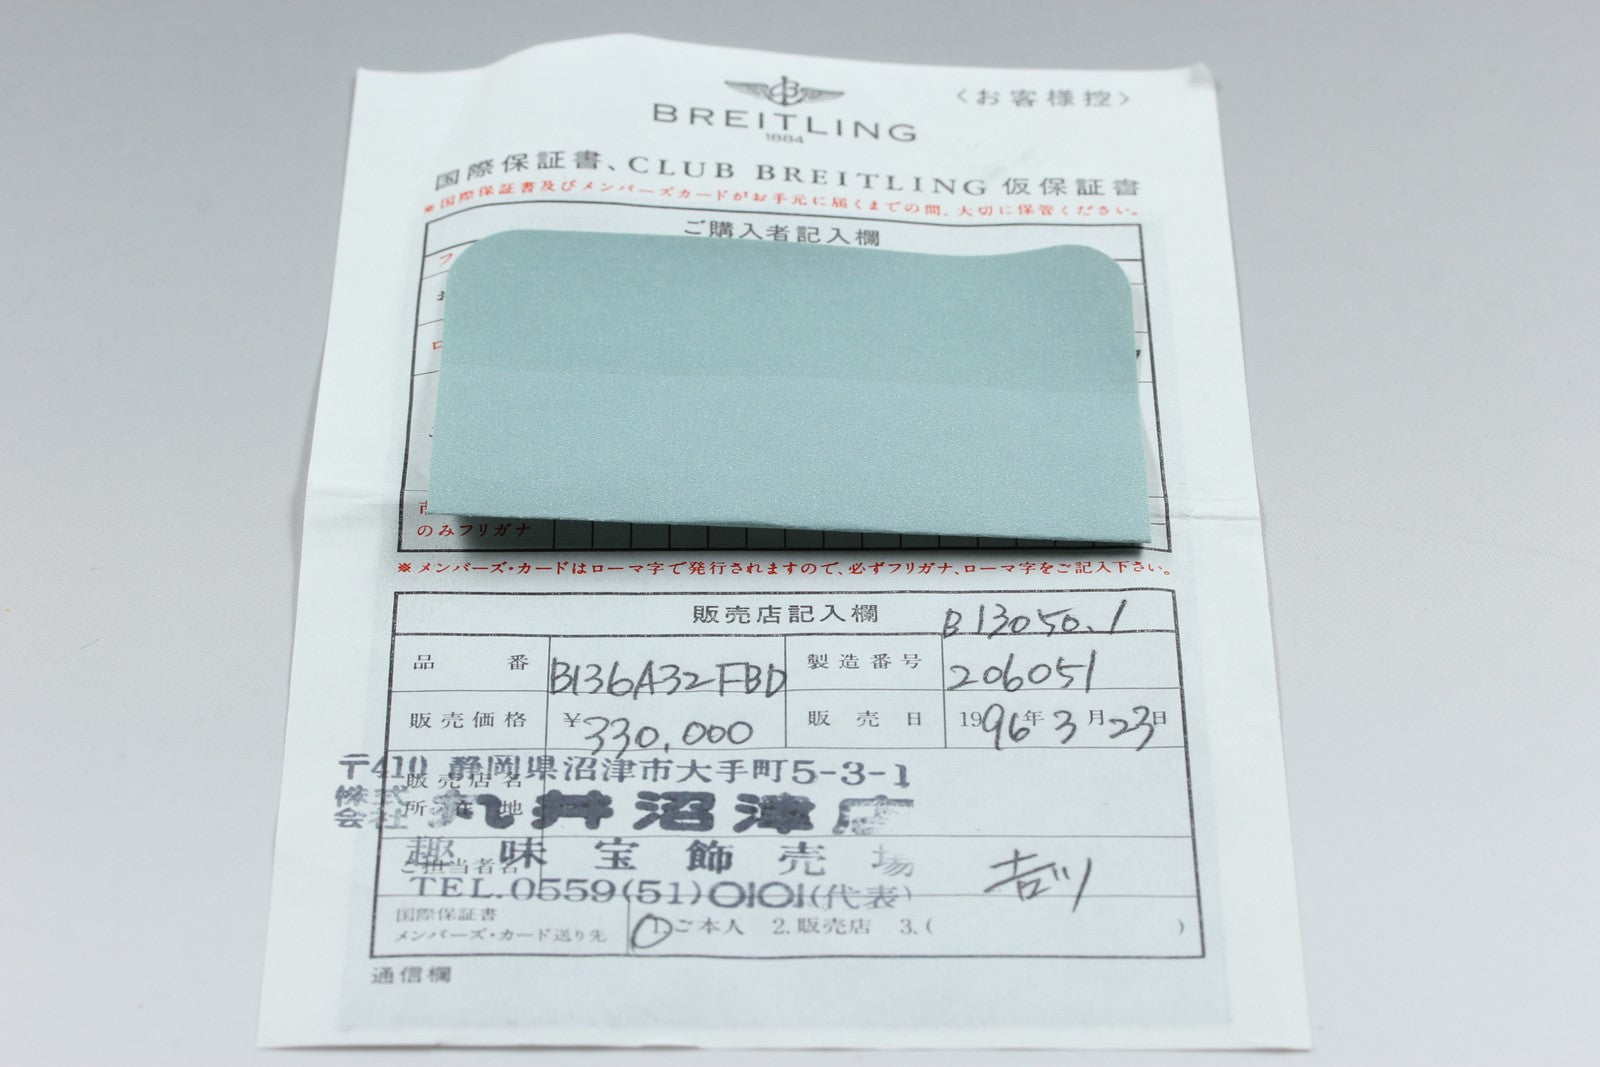 〈お客様控〉
BREITLING
1884
国際保証書、CLUB BREITLING 仮保証書
※国際保証書及びメンバーズカードがお手元に届くまでの間、大切に保管ください。
ご購入者記入欄
フ
ロ
のみフリガナ
※メンバーズ・カードはローマ字で発行されますので、必ずフリガナ、ローマ字をご記入下さい。
販売店記入欄 B13050.1
品番 B136A32FBD 製造番号 206051
販売価格 ¥330,000 販売日 1996年3月23日
〒410 静岡県沼津市大手町5-3-1
販売店名
所在地
株式会社 丸井沼津店
趣味宝飾売場
ご担当者名
TEL.0559(51)0101(代表)
国際保証書
メンバーズ・カード送り先 1.ご本人 2.販売店 3.( )
通信欄